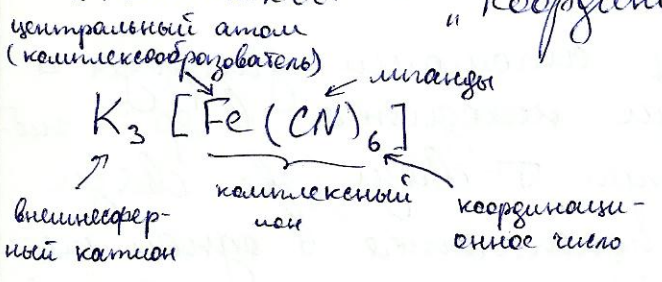 „ коорди
центральный атом
(комплексообразователь)
лиганды
K₃ [Fe(CN)₆]
внешнесфер-
ный катион
комплексный
ион
координаци-
онное число